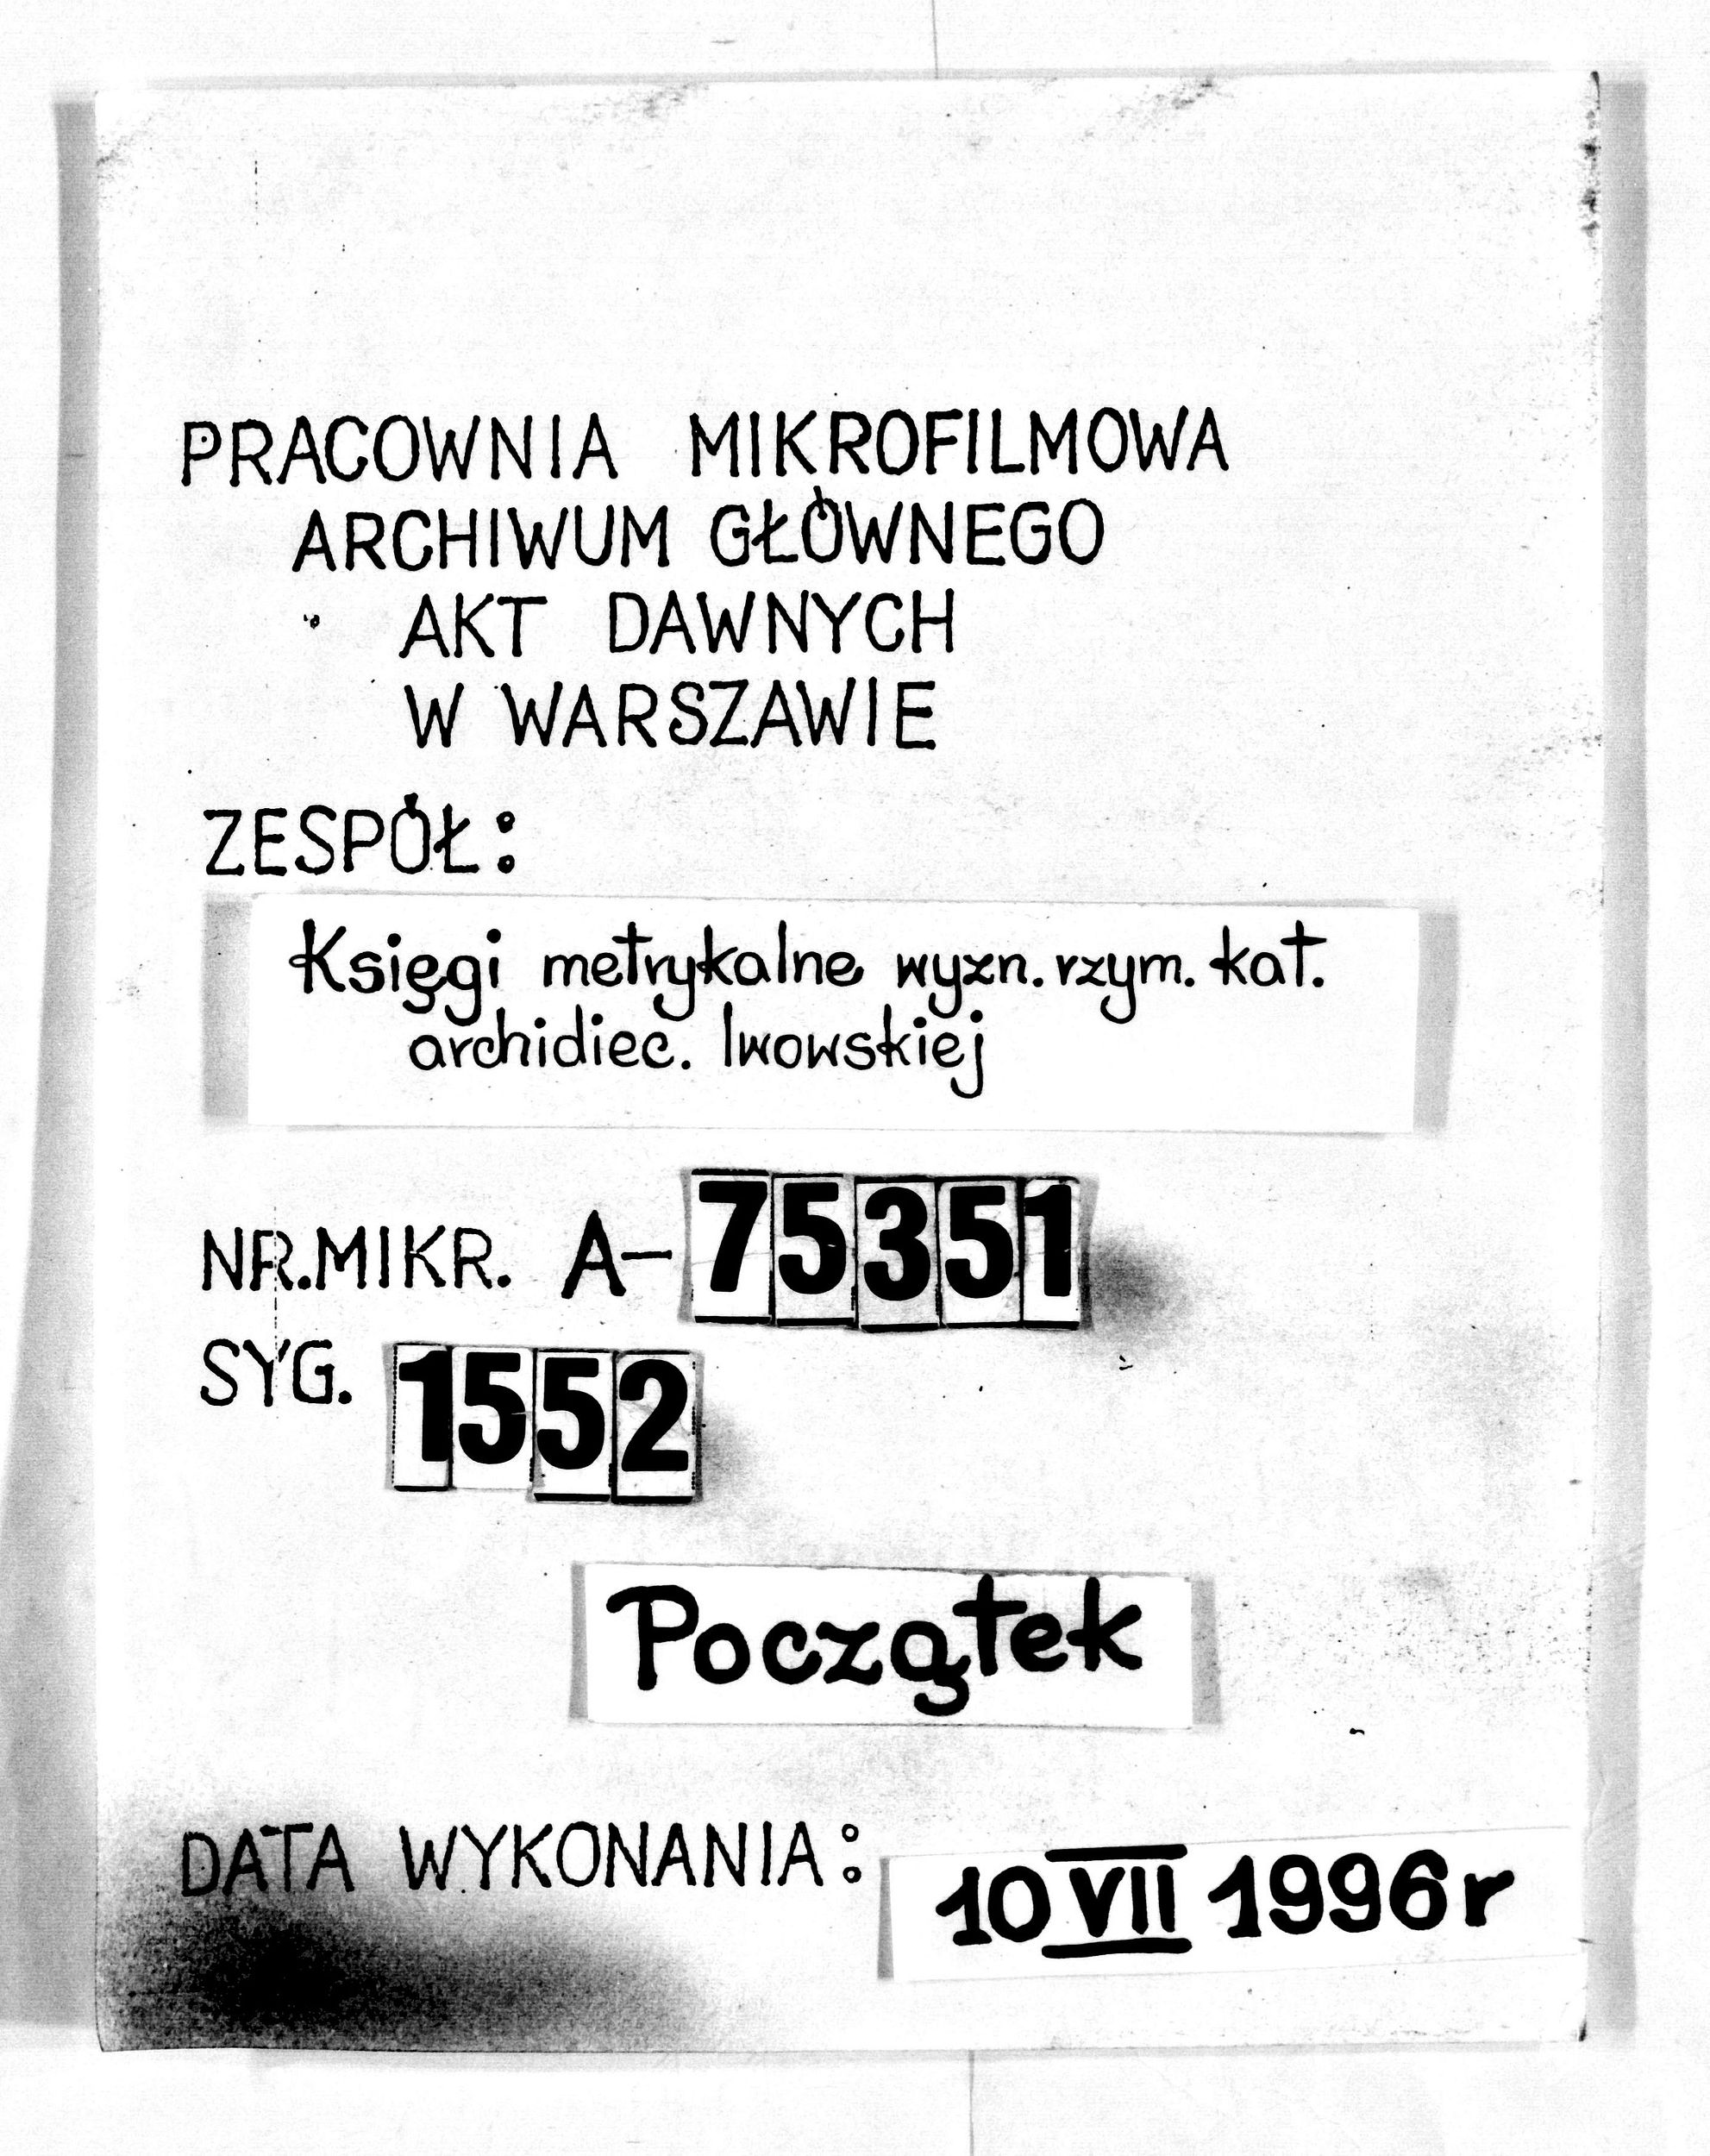 PRACOWNIA MIKROFILMOWA
ARCHIWUM GŁÓWNEGO
AKT DAWNYCH
W WARSZAWIE
ZESPÓŁ:
Księgi metrykalne wyzn. rzym. kat.
archidiec. lwowskiej
NR.MIKR. A-75351
SYG. 1552
Początek
DATA WYKONANIA: 10 VII 1996 r